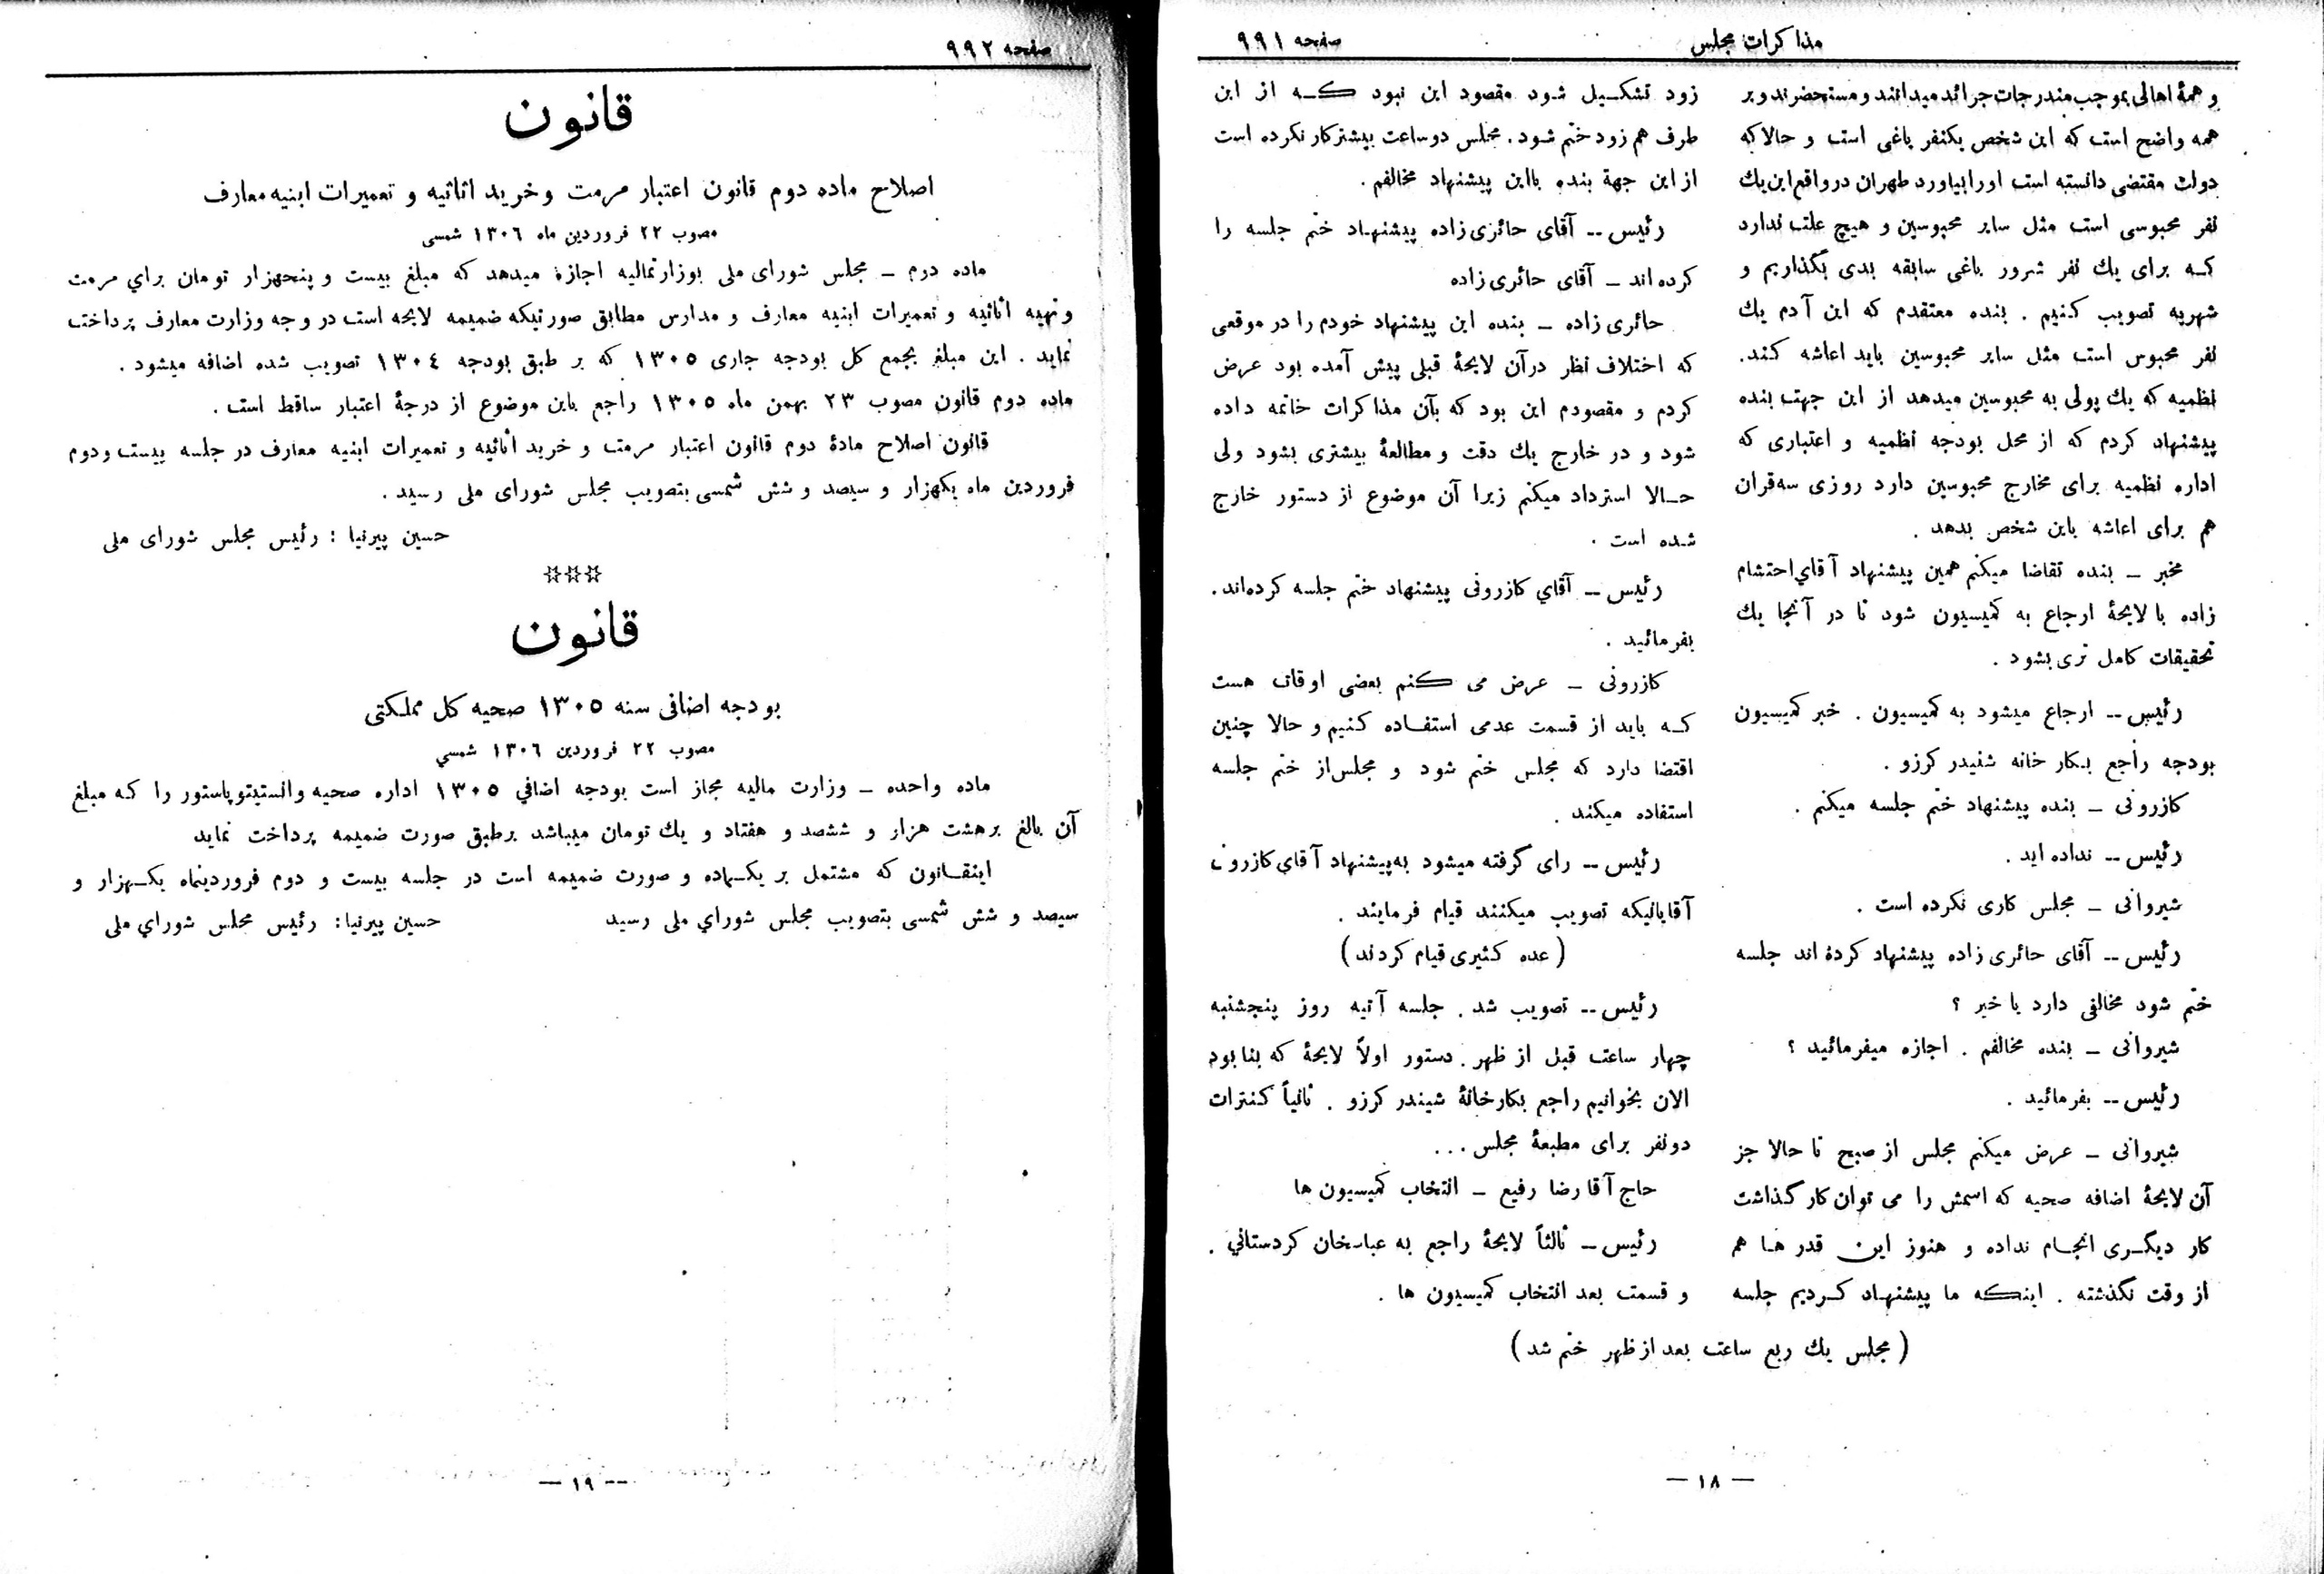 مذاکرات مجلس
صفحه ۹۹۱
و همهٔ اهالی بموجب مندرجات جرائد میدانند و مستحضرند و بر
همه واضح است که این شخص یکنفر یاغی است و حالا که
دولت مقتضی دانسته است او را بیاورد طهران در واقع این یك
نفر محبوسی است مثل سایر محبوسین و هیچ علت ندارد
که برای یك نفر شرور یاغی سابقه بدی بگذاریم و
شهریه تصویب کنیم . بنده معتقدم که این آدم یك
نفر محبوس است مثل سایر محبوسین باید اعاشه کند.
نظمیه که یك پولی به محبوسین میدهد از این جهت بنده
پیشنهاد کردم که از محل بودجه نظمیه و اعتباری که
اداره نظمیه برای مخارج محبوسین دارد روزی سه قران
هم برای اعاشه باین شخص بدهد .
مخبر ــ بنده تقاضا میکنم همین پیشنهاد آقاي احتشام
زاده با لایحهٔ ارجاع به کمیسیون شود تا در آنجا یك
تحقیقات کامل تری بشود .
رئیس -- ارجاع میشود به کمیسیون . خبر کمیسیون
بودجه راجع بکار خانه شنیدر کرزو .
کازرونی ــ بنده پیشنهاد ختم جلسه میکنم .
رئیس -- نداده اید .
شیروانی ــ مجلس کاری نکرده است .
رئیس -- آقای حائری زاده پیشنهاد کرده اند جلسه
ختم شود مخالفی دارد یا خیر ؟
شیروانی ــ بنده مخالفم . اجازه میفرمائید ؟
رئیس -- بفرمائید .
شیروانی ــ عرض میکنم مجلس از صبح تا حالا جز
آن لایحهٔ اضافه صحیه که اسمش را می توان کار گذاشت
کار دیگری انجام نداده و هنوز این قدر ها هم
از وقت نگذشته . اینکه ما پیشنهاد کردیم جلسه
زود تشکیل شود مقصود این نبود که از این
طرف هم زود ختم شود . مجلس دو ساعت بیشتر کار نکرده است
از این جهة بنده با این پیشنهاد مخالفم .
رئیس -- آقای حائری زاده پیشنهاد ختم جلسه را
کرده اند ــ آقای حائری زاده
حائری زاده ــ بنده این پیشنهاد خودم را در موقعی
که اختلاف نظر در آن لایحهٔ قبلی پیش آمده بود عرض
کردم و مقصودم این بود که بآن مذاکرات خاتمه داده
شود و در خارج یك دقت و مطالعهٔ بیشتری بشود ولی
حالا استرداد میکنم زیرا آن موضوع از دستور خارج
شده است .
رئیس -- آقاي کازرونی پیشنهاد ختم جلسه کرده‌اند.
بفرمائید .
کازرونی ــ عرض می کنم بعضی اوقات هست
که باید از قسمت عدمی استفاده کنیم و حالا چنین
اقتضا دارد که مجلس ختم شود و مجلس از ختم جلسه
استفاده میکند .
رئیس -- رای گرفته میشود به پیشنهاد آقای کازرونی
آقایانیکه تصویب میکنند قیام فرمایند .
( عده کثیری قیام کردند )
رئیس -- تصویب شد . جلسه آتیه روز پنجشنبه
چهار ساعت قبل از ظهر . دستور اولاً لایحهٔ که بنا بود
الان بخوانیم راجع بکارخانهٔ شیندر کرزو . ثانیاً کنترات
دو نفر برای مطبعهٔ مجلس ...
حاج آقا رضا رفیع ــ انتخاب کمیسیون ها
رئیس ــ ثالثاً لایحهٔ راجع به عباسخان کردستاني .
و قسمت بعد انتخاب کمیسیون ها .
( مجلس یك ربع ساعت بعد از ظهر ختم شد )
— ۱۸ —
صفحه ۹۹۲
قانون
اصلاح ماده دوم قانون اعتبار مرمت و خرید اثاثیه و تعمیرات ابنیه معارف
مصوب ۲۲ فروردین ماه ۱۳۰۶ شمسی
ماده دوم ــ مجلس شورای ملی بوزارتمالیه اجازه میدهد که مبلغ بیست و پنجهزار تومان براي مرمت
و تهیه اثاثیه و تعمیرات ابنیه معارف و مدارس مطابق صورتیکه ضمیمه لایحه است در وجه وزارت معارف پرداخت
نماید . این مبلغ بجمع کل بودجه جاری ۱۳۰۵ که بر طبق بودجه ۱۳۰۴ تصویب شده اضافه میشود .
ماده دوم قانون مصوب ۲۳ بهمن ماه ۱۳۰۵ راجع باین موضوع از درجهٔ اعتبار ساقط است .
قانون اصلاح مادهٔ دوم قانون اعتبار مرمت و خرید اثاثیه و تعمیرات ابنیه معارف در جلسه بیست و دوم
فروردین ماه یکهزار و سیصد و شش شمسی بتصویب مجلس شورای ملی رسید .
حسین پیرنیا : رئیس مجلس شورای ملی
☆☆☆
قانون
بودجه اضافی سنه ۱۳۰۵ صحیه کل مملکتی
مصوب ۲۲ فروردین ۱۳۰۶ شمسي
ماده واحده ــ وزارت مالیه مجاز است بودجه اضافي ۱۳۰۵ اداره صحیه و انستیتو پاستور را که مبلغ
آن بالغ بر هشت هزار و ششصد و هفتاد و یك تومان میباشد بر طبق صورت ضمیمه پرداخت نماید
اینقانون که مشتمل بر یکماده و صورت ضمیمه است در جلسه بیست و دوم فروردینماه یکهزار و
سیصد و شش شمسی بتصویب مجلس شوراي ملی رسید حسین پیرنیا: رئیس مجلس شوراي ملی
— ۱۹ —